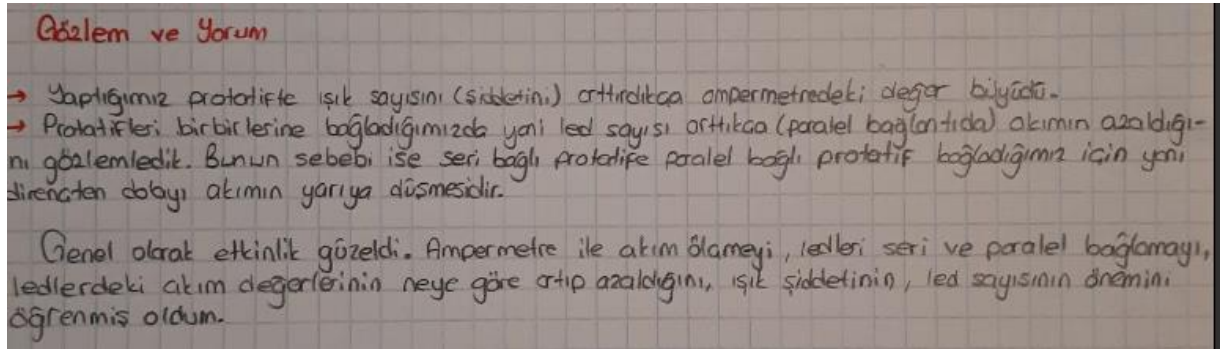 Gözlem ve Yorum
→ Yaptığımız prototipte ışık sayısını (şiddetini) arttırdıkça ampermetredeki değer büyüdü.
→ Prototipleri birbirlerine bağladığımızda yani led sayısı arttıkça (paralel bağlantıda) akımın azaldığı-
nı gözlemledik. Bunun sebebi ise seri bağlı prototipe paralel bağlı prototip bağladığımız için yani
dirençten dolayı akımın yarıya düşmesidir.
Genel olarak etkinlik güzeldi. Ampermetre ile akım ölçmeyi, ledleri seri ve paralel bağlamayı,
ledlerdeki akım değerlerinin neye göre artıp azaldığını, ışık şiddetinin, led sayısının önemini
öğrenmiş oldum.